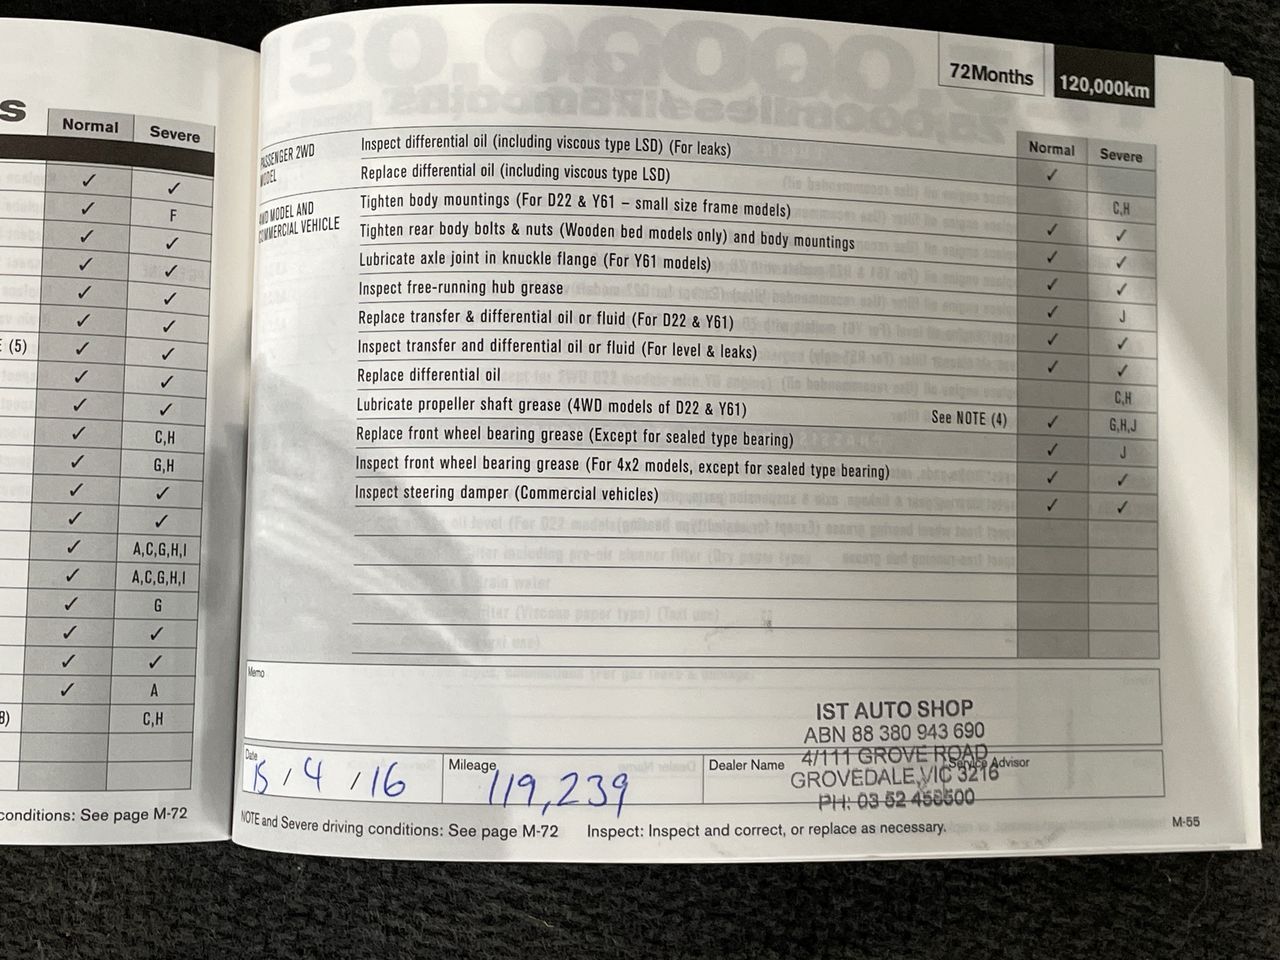 S
Normal Severe
✓ ✓
✓ F
✓ ✓
✓ ✓
✓ ✓
✓ ✓
E (5) ✓ ✓
✓ ✓
✓ ✓
✓ C,H
✓ G,H
✓ ✓
✓ ✓
✓ A,C,G,H,I
✓ A,C,G,H,I
✓ G
✓ ✓
✓ ✓
✓ A
8) C,H
conditions: See page M-72
72Months 120,000km
Normal Severe
PASSENGER 2WD
MODEL
Inspect differential oil (including viscous type LSD) (For leaks) ✓
Replace differential oil (including viscous type LSD) C,H
4WD MODEL AND
COMMERCIAL VEHICLE
Tighten body mountings (For D22 & Y61 – small size frame models) ✓ ✓
Tighten rear body bolts & nuts (Wooden bed models only) and body mountings ✓ ✓
Lubricate axle joint in knuckle flange (For Y61 models) ✓ ✓
Inspect free-running hub grease ✓ J
Replace transfer & differential oil or fluid (For D22 & Y61) ✓ ✓
Inspect transfer and differential oil or fluid (For level & leaks) ✓ ✓
Replace differential oil C,H
Lubricate propeller shaft grease (4WD models of D22 & Y61) See NOTE (4) ✓ G,H,J
Replace front wheel bearing grease (Except for sealed type bearing) ✓ J
Inspect front wheel bearing grease (For 4x2 models, except for sealed type bearing) ✓ ✓
Inspect steering damper (Commercial vehicles) ✓ ✓
Memo
IST AUTO SHOP
ABN 88 380 943 690
4/111 GROVE ROAD
GROVEDALE, VIC 3216
PH: 03 52 458500
Date 15 / 4 / 16
Mileage 119,239
Dealer Name
Service Advisor
NOTE and Severe driving conditions: See page M-72 Inspect: Inspect and correct, or replace as necessary.
M-55